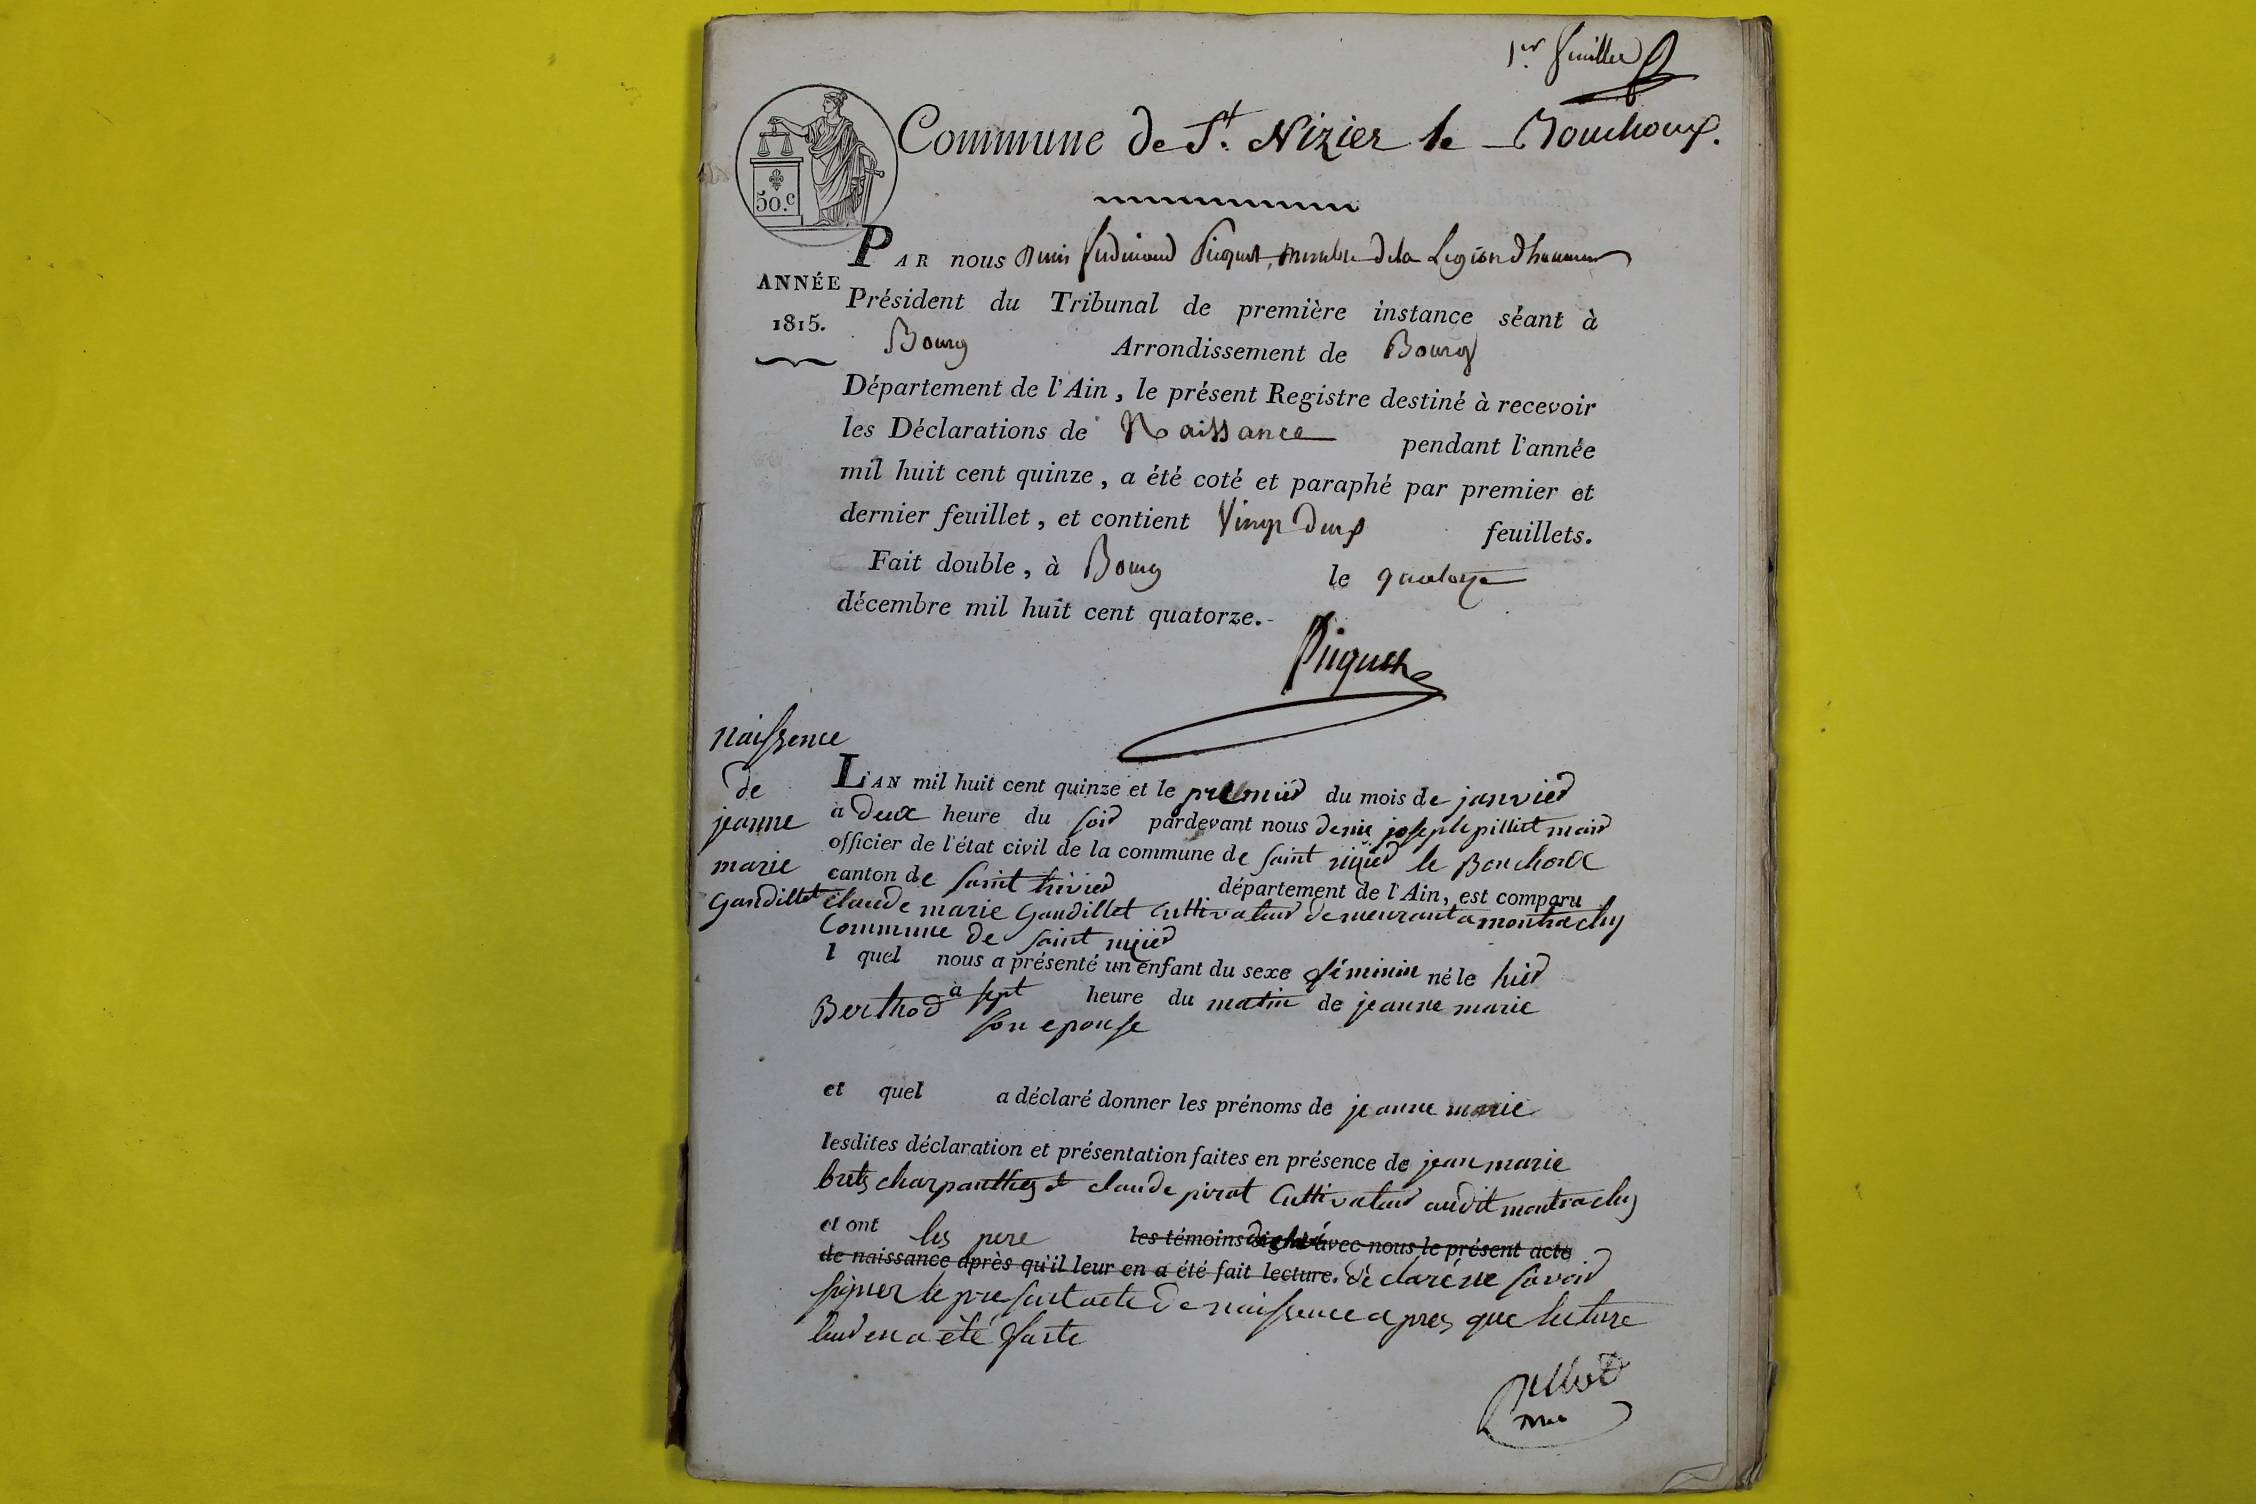 1er feuillet
Commune de St. Nizier le Bouchoux.
50.c
PAR nous Denis ferdinand Picquet, membre de la Legion d'honneur
ANNÉE
1815.
Président du Tribunal de première instance séant à
Bourg Arrondissement de Bourg
Département de l'Ain, le présent Registre destiné à recevoir
les Déclarations de Naissance pendant l'année
mil huit cent quinze, a été coté et paraphé par premier et
dernier feuillet, et contient Vingt Deux feuillets.
Fait double, à Bourg le quatorze
décembre mil huit cent quatorze.
Picquet
naissence
de
jeanne
marie
Gaudillet
L'AN mil huit cent quinze et le premier du mois de janvier
à deux heure du soir pardevant nous denis joseph pilliet mair
officier de l'état civil de la commune de saint nizier le Bouchoux
canton de saint trivier département de l'Ain, est comparu
claude marie Gaudillet Cultivateur demeurant a montrachy
Commune de saint nizier
l quel nous a présenté un enfant du sexe féminin né le hier
à sept heure du matin de jeanne marie
Berthod son epouse
et quel a déclaré donner les prénoms de jeanne marie
lesdites déclaration et présentation faites en présence de jean marie
charpantier et claude pirat Cultivateur audit montrachy
et ont les pere les témoins signé avec nous le présent acte
de naissance après qu'il leur en a été fait lecture. déclaré ne savoir
signer le present acte de naissence apres que lecture
leur en a été faite